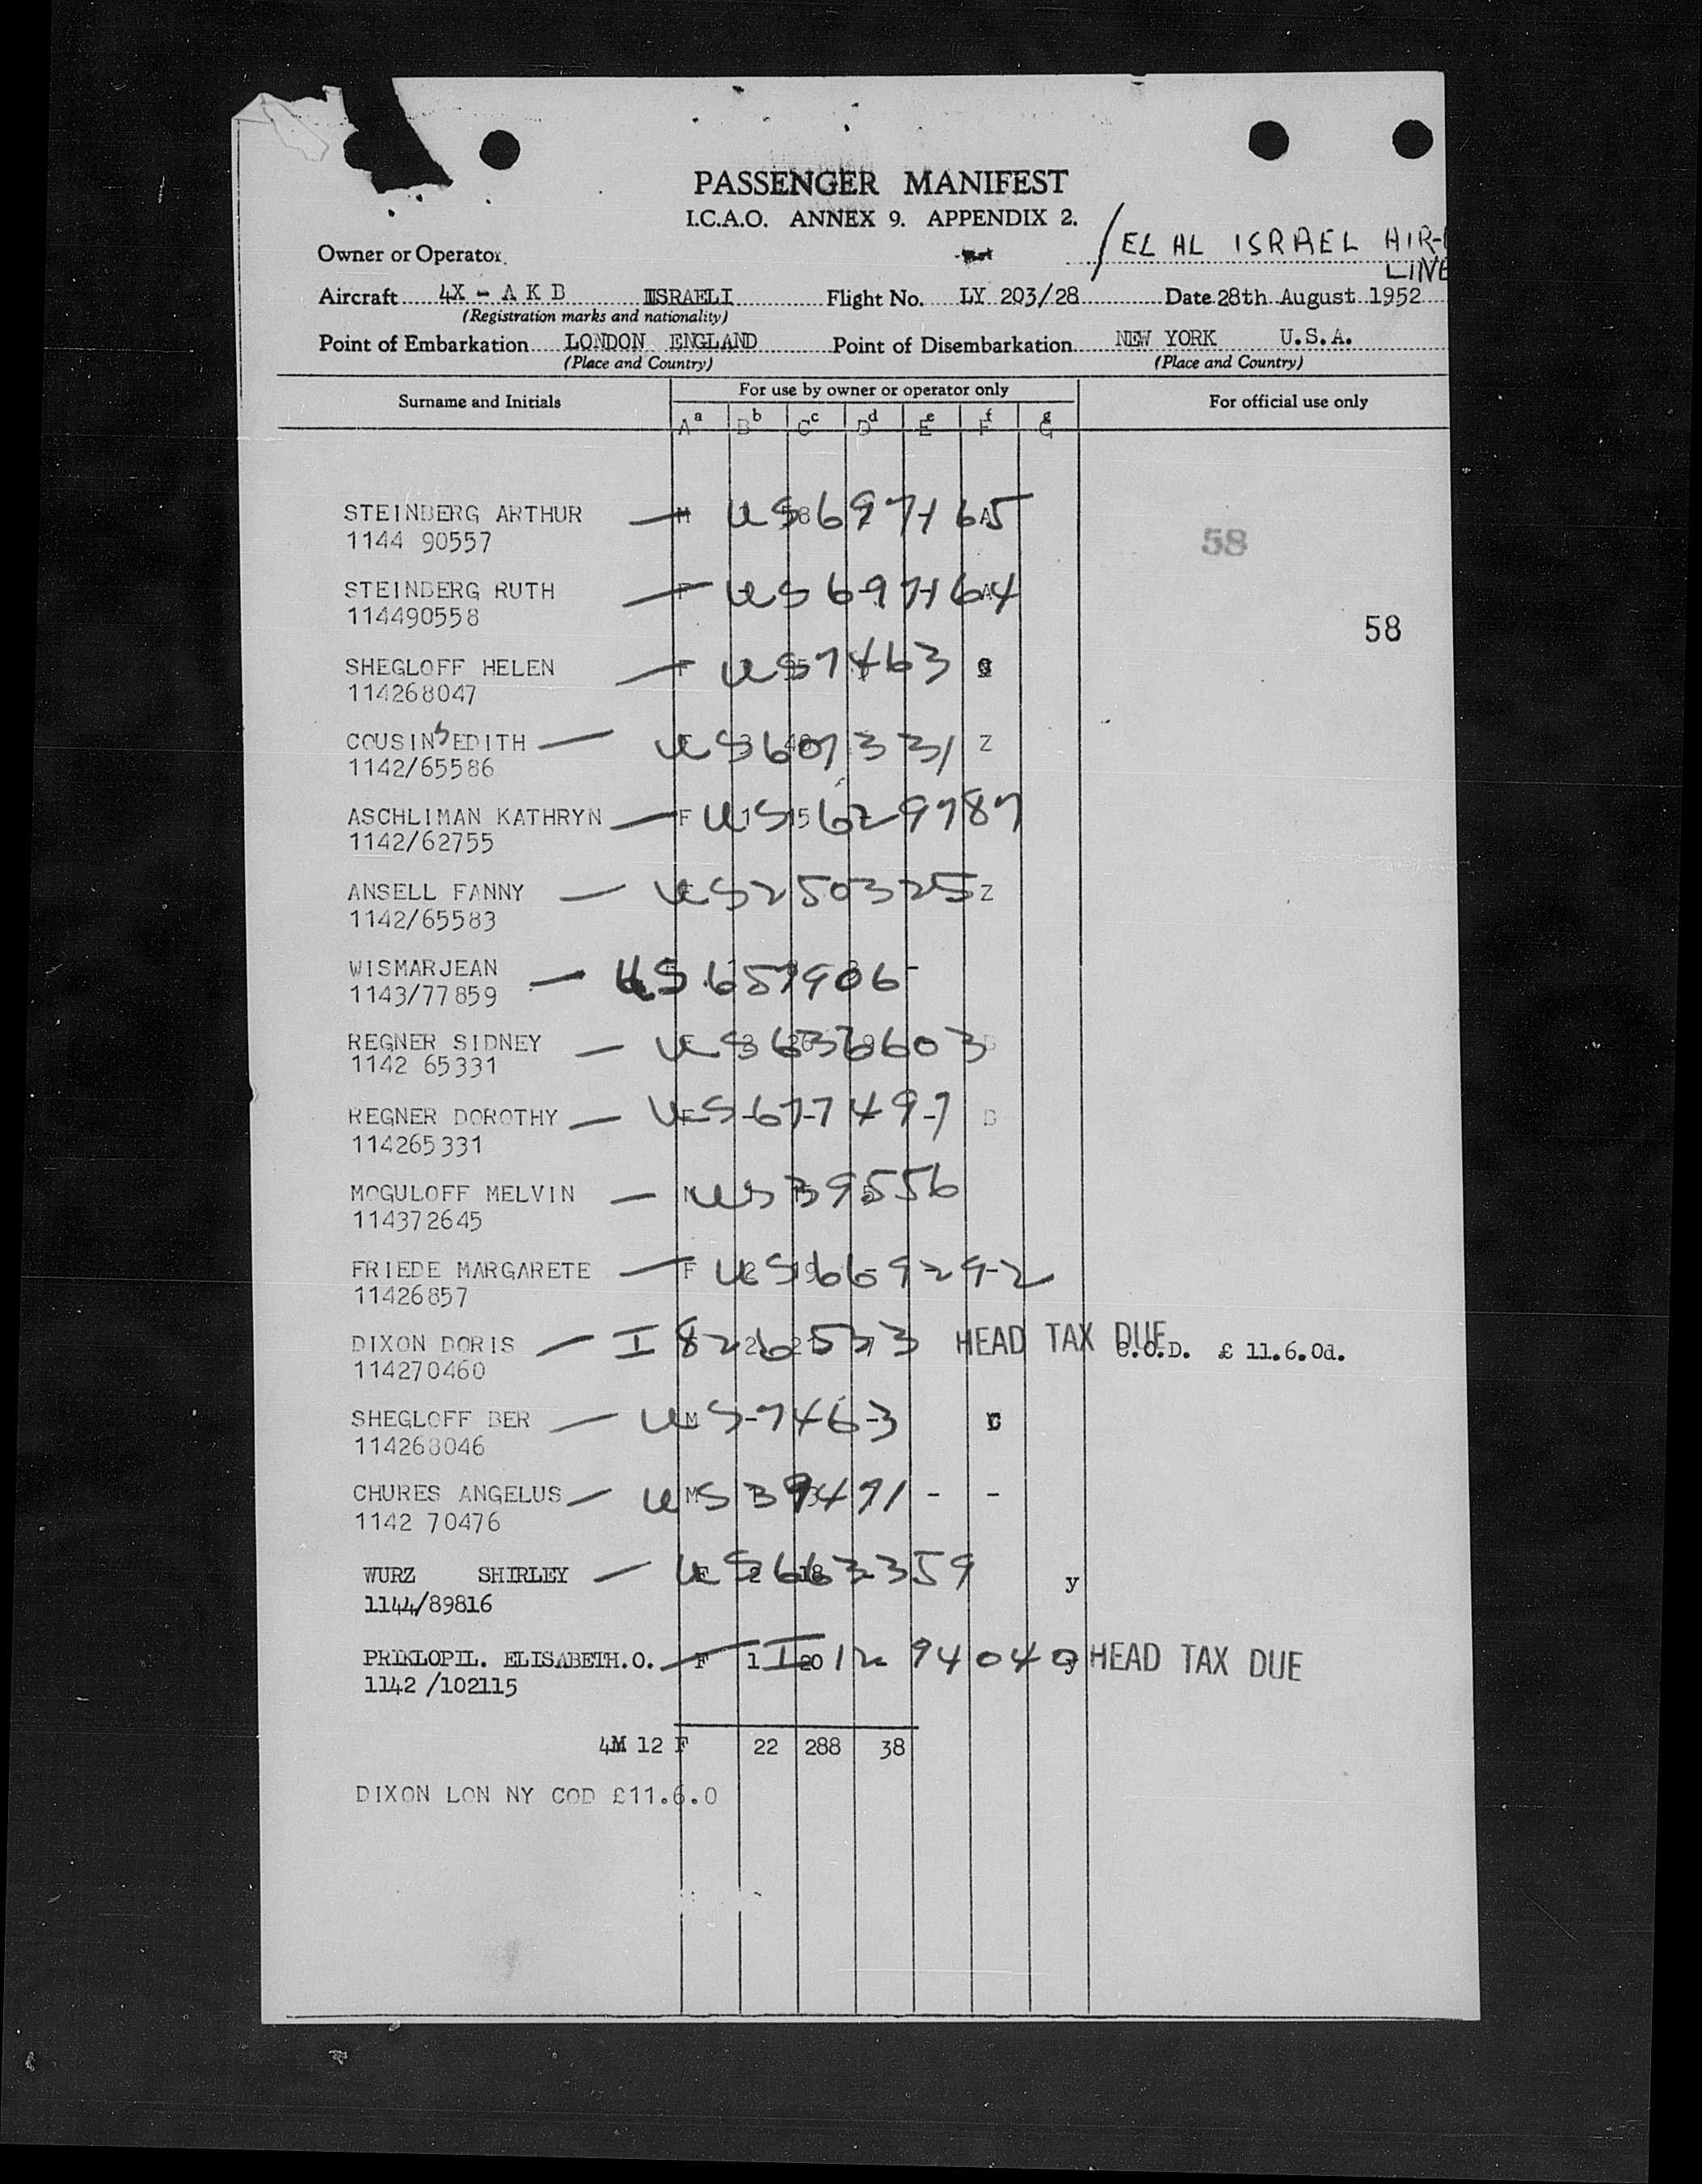 PASSENGER MANIFEST
I.C.A.O. ANNEX 9. APPENDIX 2.
Owner or Operator / EL AL ISRAEL AIR-
LINE
Aircraft 4X - A K B ISRAELI Flight No. LY 203/28 Date 28th August 1952
(Registration marks and nationality)
Point of Embarkation LONDON ENGLAND Point of Disembarkation NEW YORK U.S.A.
(Place and Country) (Place and Country)
For use by owner or operator only
Surname and Initials For official use only
a b c d e f g
A B C D E F G
STEINBERG ARTHUR — M US 697165 A
1144 90557
58
STEINBERG RUTH — F US 697164 A
114490558
58
SHEGLOFF HELEN — F US 7463
114268047
COUSINS EDITH — US 607331 Z
1142/65586
ASCHLIMAN KATHRYN — F US 629787
1142/62755
ANSELL FANNY — US 250325 Z
1142/65583
WISMARJEAN — US 657906 -
1143/77859
REGNER SIDNEY — US 636603
1142 65331
REGNER DOROTHY — US 677497
114265331
MOGULOFF MELVIN — US 39556
114372645
FRIEDE MARGARETE — F US 669292
11426857
DIXON DORIS — I 826533 HEAD TAX DUE C.O.D. £ 11.6.0d.
114270460
SHEGLOFF BER — M US 7463 C
114268046
CHURES ANGELUS — M US 39491 - -
1142 70476
WURZ SHIRLEY — F US 663359 y
1144/89816
PRIKLOPIL. ELISABETH.O. — F 1 I 20 12 94040 y HEAD TAX DUE
1142 /102115
4M 12 F 22 288 38
DIXON LON NY COD £11.6.0